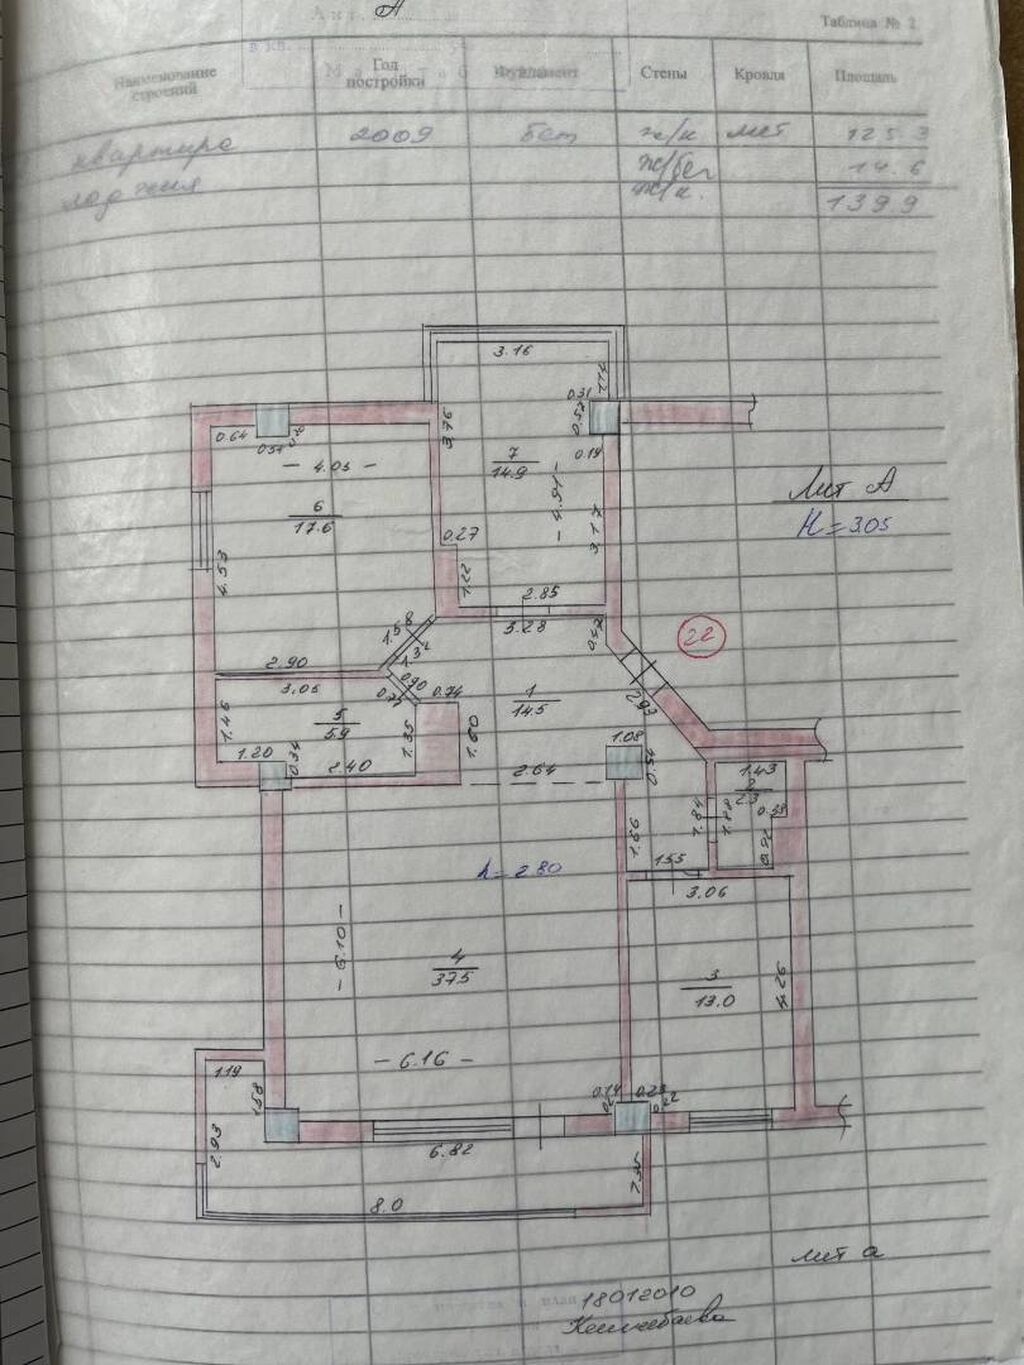 А
Таблица № 2
Наименование строений
Год постройки
Фундамент
Стены
Кровля
Площадь
квартира 2009 бет ж/к мет 125 3
лоджия ж/бет 14.6
ж/к. 139 9
3.16
0.31
0.64
3.76
0.19
7
14.9
4.05
4.91
6
17.6
3.17
0.27
4.53
1.22
2.85
3.28
1.58
1.32
2.90
3.05
0.90
0.74
1
14.5
2.93
22
Лит А
H = 3.05
1.46
5
5.9
1.35
1.60
1.20
0.34
2.40
2.64
1.08
1.43
2
2.3
0.38
1.66
1.84
1.88
h = 2.80
1.55
3.06
6.10
4
37.5
3
13.0
4.26
6.16
1.19
1.58
0.14
0.23
2.93
6.82
8.0
лит а
18012010